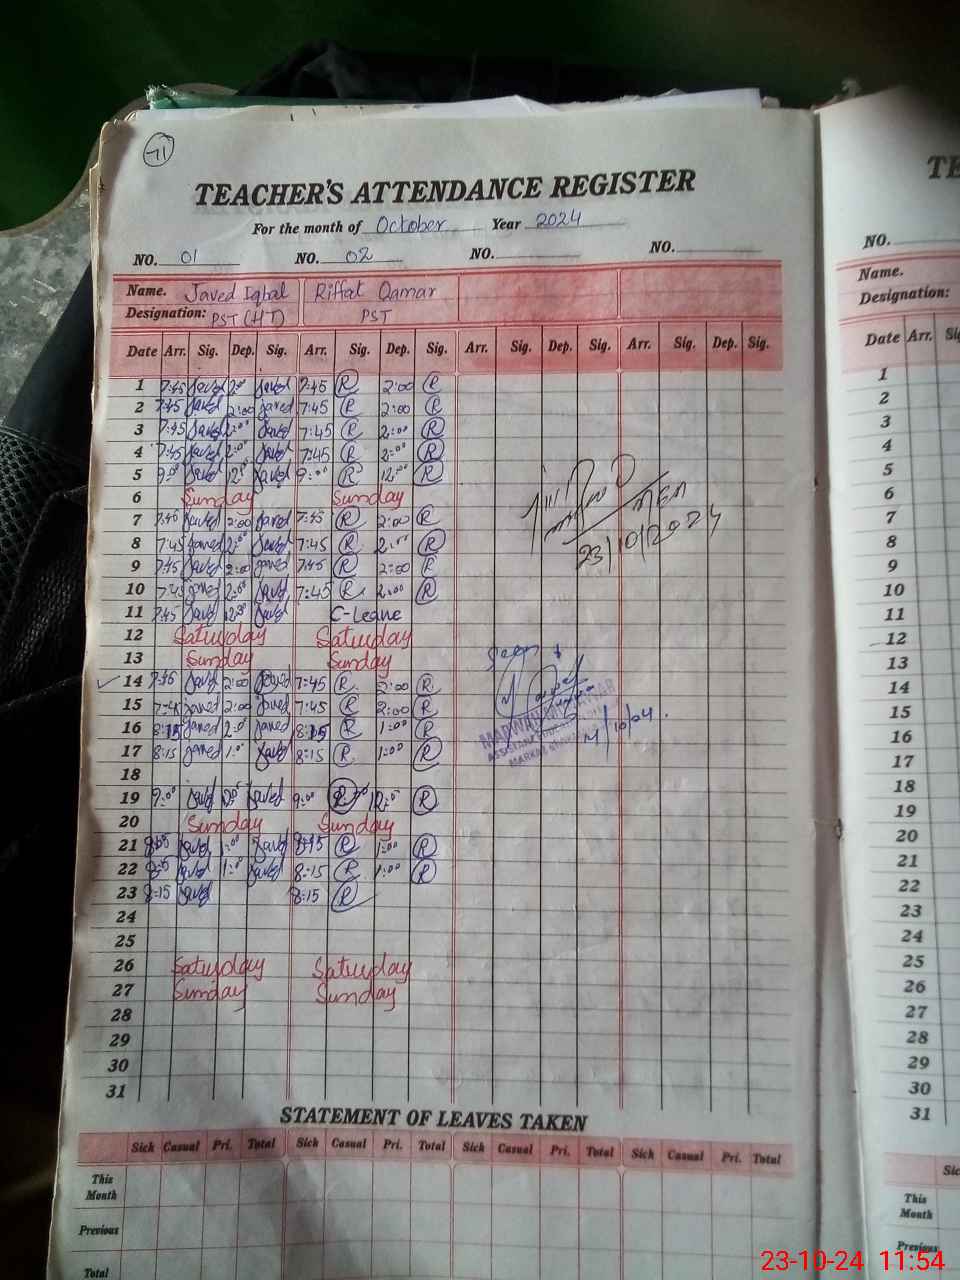 71
TEACHER'S ATTENDANCE REGISTER
For the month of October Year 2024
NO. 01 NO. 02 NO. NO.
Name. Javed Iqbal Riffat Qamar
Designation: PST (HT) PST
Date Arr. Sig. Dep. Sig. Arr. Sig. Dep. Sig. Arr. Sig. Dep. Sig. Arr. Sig. Dep. Sig.
1 7:45 Javed 2:00 Javed 7:45 R 2:00 R
2 7:45 Javed 2:00 Javed 7:45 R 2:00 R
3 7:45 Javed 2:00 Javed 7:45 R 2:00 R
4 7:45 Javed 2:00 Javed 7:45 R 2:00 R
5 9:00 Javed 12:00 Javed 9:00 R 12:00 R
6 Sunday Sunday
7 7:45 Javed 2:00 Javed 7:45 R 2:00 R
8 7:45 Javed 2:00 Javed 7:45 R 2:00 R
9 7:45 Javed 2:00 Javed 7:45 R 2:00 R
10 7:45 Javed 2:00 Javed 7:45 R 2:00 R
11 7:45 Javed 12:00 Javed C-Leave
12 Saturday Saturday
13 Sunday Sunday
14 7:45 Javed 2:00 Javed 7:45 R 2:00 R
15 7:45 Javed 2:00 Javed 7:45 R 2:00 R
16 8:15 Javed Javed 8:15 R 1:00 R
17 8:15 Javed 1:00 Javed 8:15 R 1:00 R
18
19 9:00 Javed Javed 9:00 R R
20 Sunday Sunday
21 8:15 Javed 1:00 Javed 8:15 R 1:00 R
22 8:15 Javed 1:00 Javed 8:15 R 1:00 R
23 8:15 Javed 8:15 R
24
25
26 Saturday Saturday
27 Sunday Sunday
28
29
30
31
23/10/2024
Seen
STATEMENT OF LEAVES TAKEN
Sick Casual Pri. Total Sick Casual Pri. Total Sick Casual Pri. Total Sick Casual Pri. Total
This Month
Previous
Total
TE
NO.
Name.
Designation:
Date Arr.
1
2
3
4
5
6
7
8
9
10
11
12
13
14
15
16
17
18
19
20
21
22
23
24
25
26
27
28
29
30
31
This Month
Previous
23-10-24 11:54